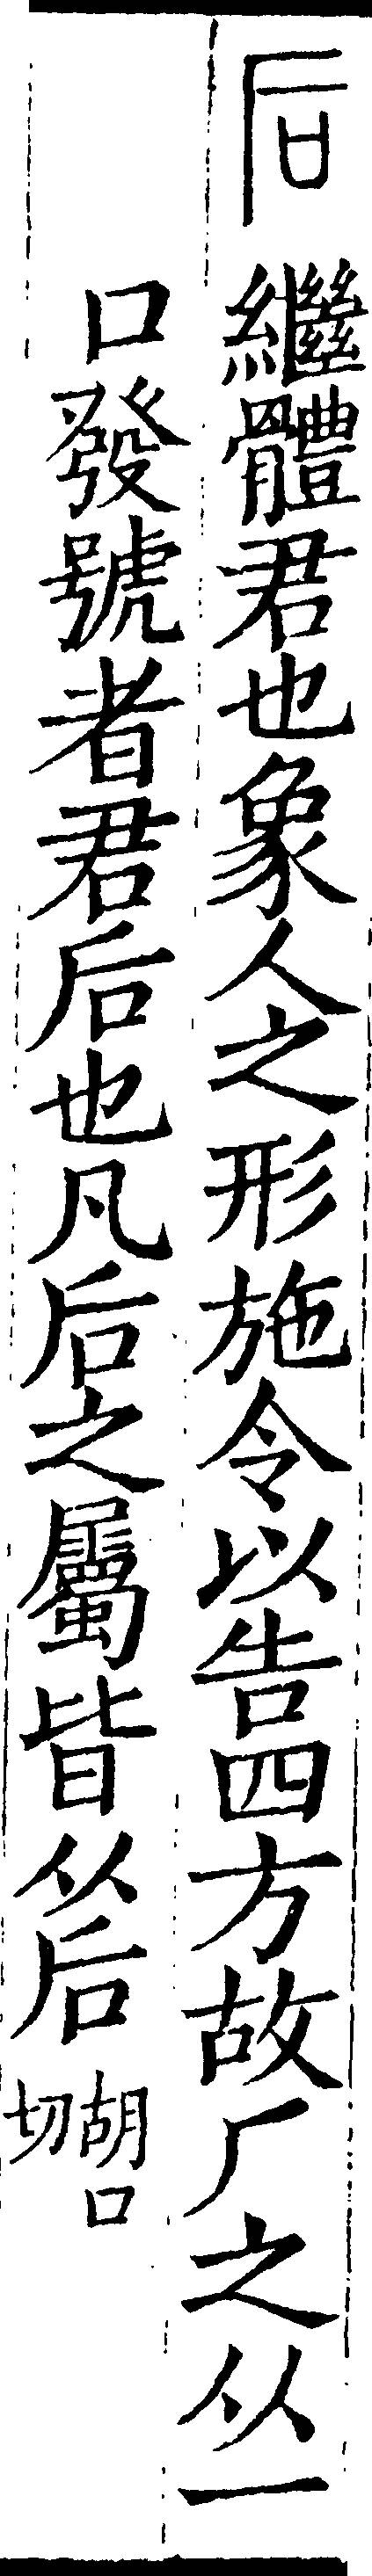 后 繼體君也象人之形施令以告四方故厂之从一
口發號者君后也凡后之屬皆从后 胡口切